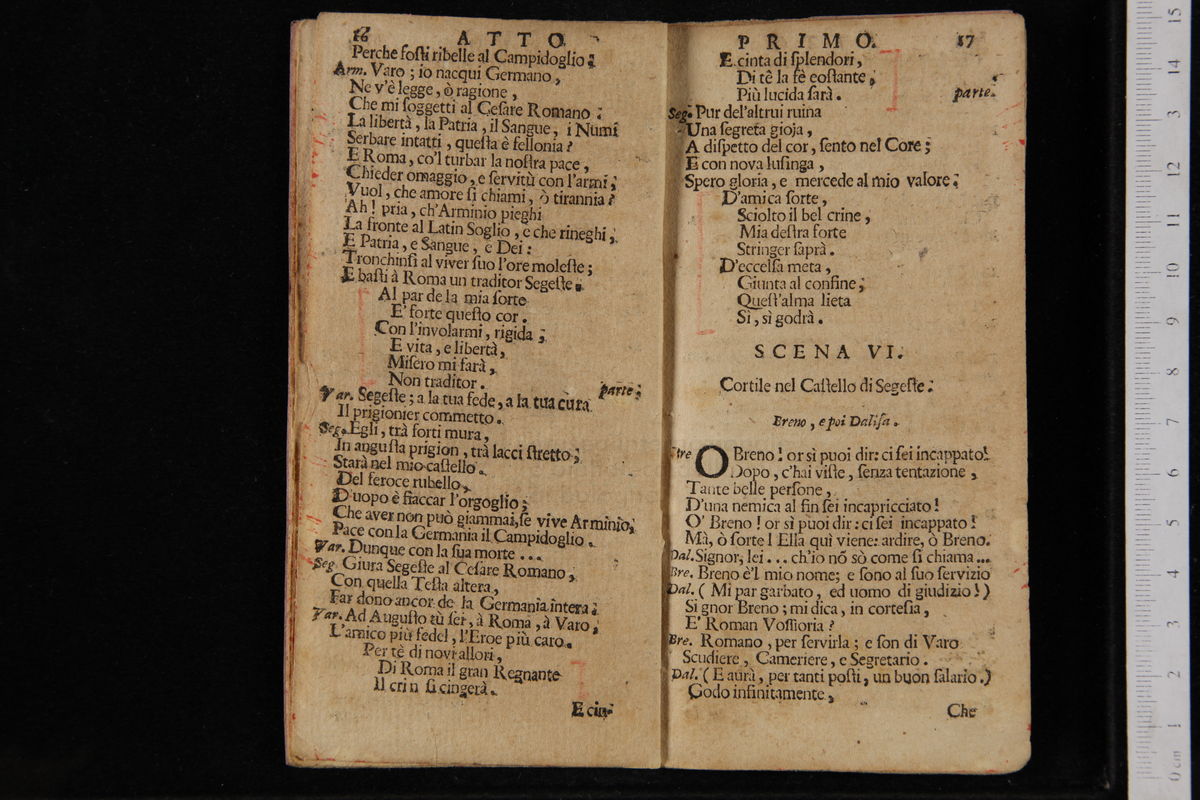 16 ATTO
Perche foſti ribelle al Campidoglio;
Arm. Varo; io nacqui Germano,
Ne v'è legge, ò ragione,
Che mi ſoggetti al Ceſare Romano:
La libertà, la Patria, il Sangue, i Numi
Serbare intatti, queſta è fellonia?
E Roma, co'l turbar la noſtra pace,
Chieder omaggio, e ſervitù con l'armi,
Vuol, che amore ſi chiami, ò tirannia?
Ah! pria, ch'Arminio pieghi
La fronte al Latin Soglio, e che rineghi,
E Patria, e Sangue, e Dei:
Tronchinſi al viver ſuo l'ore moleſte;
E baſti à Roma un traditor Segeſte.
Al par de la mia ſorte
E' forte queſto cor.
Con l'involarmi, rigida,
E vita, e libertà,
Miſero mi farà,
Non traditor.
parte.
Var. Segeſte; a la tua fede, a la tua cura
Il prigionier commetto.
Seg. Egli, trà forti mura,
In anguſta prigion, trà lacci ſtretto;
Starà nel mio caſtello.
Del feroce rubello,
D'uopo è fiaccar l'orgoglio;
Che aver non può giammai, ſe vive Arminio,
Pace con la Germania il Campidoglio.
Var. Dunque con la ſua morte ...
Seg. Giura Segeſte al Ceſare Romano,
Con quella Teſta altera,
Far dono ancor de la Germania intera.
Var. Ad Auguſto tù ſei, à Roma, à Varo,
L'amico più fedel, l'Eroe più caro.
Per tè di novi allori,
Di Roma il gran Regnante
Il crin ſi cingerà.
E cin-
PRIMO. 17
E cinta di ſplendori,
Di tè la fè coſtante,
Più lucida ſarà.
parte.
Seg. Pur del'altrui ruina
Una ſegreta gioja,
A diſpetto del cor, ſento nel Core;
E con nova luſinga,
Spero gloria, e mercede al mio valore.
D'amica ſorte,
Sciolto il bel crine,
Mia deſtra forte
Stringer ſaprà.
D'eccelſa meta,
Giunta al confine,
Queſt'alma lieta
Sì, sì godrà.
SCENA VI.
Cortile nel Caſtello di Segeſte.
Breno, e poi Daliſa.
Bre O Breno! or sì puoi dir: ci ſei incappato!
Dopo, c'hai viſte, ſenza tentazione,
Tante belle perſone,
D'una nemica al fin ſei incapricciato!
O' Breno! or sì puoi dir: ci ſei incappato!
Mà, ò ſorte! Ella quì viene: ardire, ò Breno.
Dal. Signor, lei ... ch'io nõ sò come ſi chiama ...
Bre. Breno è'l mio nome; e ſono al ſuo ſervizio
Dal. (Mi par garbato, ed uomo di giudizio!)
Signor Breno; mi dica, in corteſia,
E' Roman Voſſioria?
Bre. Romano, per ſervirla; e ſon di Varo
Scudiere, Cameriere, e Segretario.
Dal. (E aurà, per tanti poſti, un buon ſalario.)
Godo infinitamente,
Che